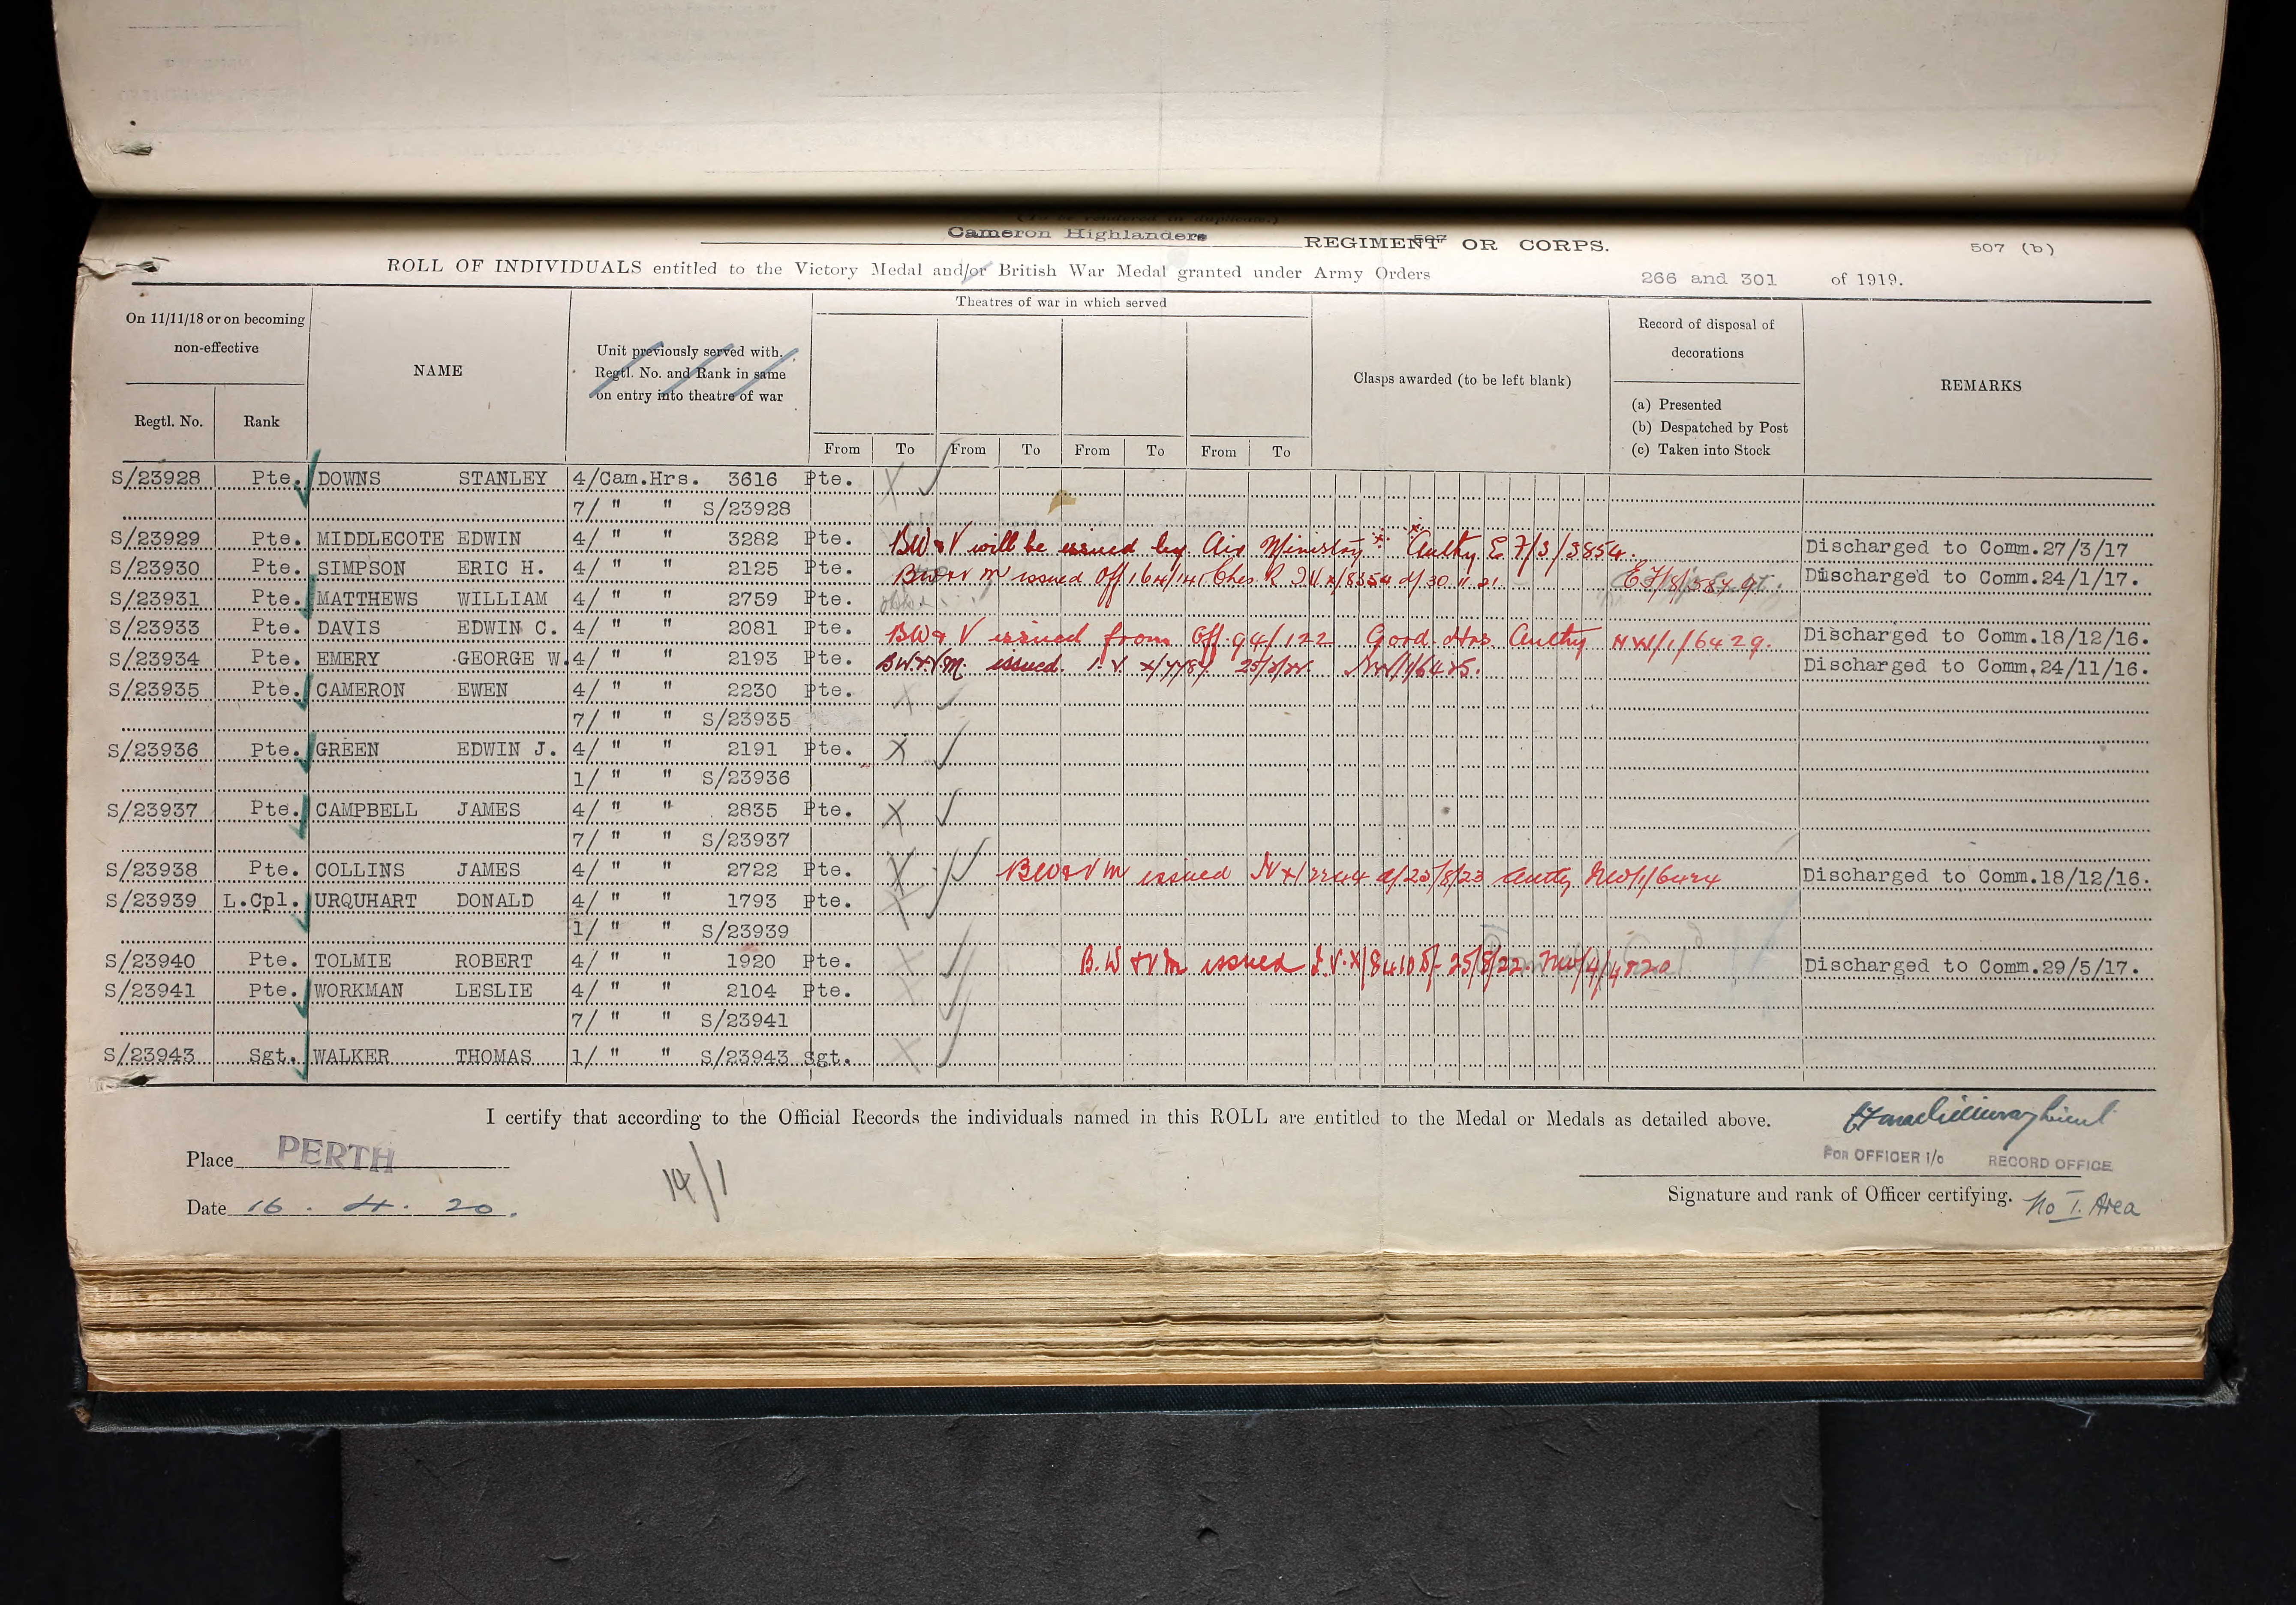 (To be rendered in duplicate.)
Cameron Highlanders REGIMENT OR CORPS.
507 507 (b)
ROLL OF INDIVIDUALS entitled to the Victory Medal and/or British War Medal granted under Army Orders 266 and 301 of 1919.
On 11/11/18 or on becoming non-effective
Regtl. No.
Rank
NAME
Unit previously served with. Regtl. No. and Rank in same on entry into theatre of war
Theatres of war in which served
From To From To From To From To
Clasps awarded (to be left blank)
Record of disposal of decorations
(a) Presented
(b) Despatched by Post
(c) Taken into Stock
REMARKS
S/23928 Pte. DOWNS STANLEY 4/Cam.Hrs. 3616 Pte.
7/ " " S/23928
S/23929 Pte. MIDDLECOTE EDWIN 4/ " " 3282 Pte. BW & V will be issued by Air Ministry * * Authy E 7/3/3854. Discharged to Comm.27/3/17
S/23930 Pte. SIMPSON ERIC H. 4/ " " 2125 Pte. issued Off 164/141 Ches R Discharged to Comm.24/1/17.
S/23931 Pte. MATTHEWS WILLIAM 4/ " " 2759 Pte.
S/23933 Pte. DAVIS EDWIN C. 4/ " " 2081 Pte. BW & V issued from Off 94/122 Gord. Hrs. Authy NW/1/6429. Discharged to Comm.18/12/16.
S/23934 Pte. EMERY GEORGE W. 4/ " " 2193 Pte. BW & VM. issued Discharged to Comm.24/11/16.
S/23935 Pte. CAMERON EWEN 4/ " " 2230 Pte.
7/ " " S/23935
S/23936 Pte. GREEN EDWIN J. 4/ " " 2191 Pte.
1/ " " S/23936
S/23937 Pte. CAMPBELL JAMES 4/ " " 2835 Pte.
7/ " " S/23937
S/23938 Pte. COLLINS JAMES 4/ " " 2722 Pte. BW & VM issued Authy NW/1/6424 Discharged to Comm.18/12/16.
S/23939 L.Cpl. URQUHART DONALD 4/ " " 1793 Pte.
1/ " " S/23939
S/23940 Pte. TOLMIE ROBERT 4/ " " 1920 Pte. B.W & VM issued Discharged to Comm.29/5/17.
S/23941 Pte. WORKMAN LESLIE 4/ " " 2104 Pte.
7/ " " S/23941
S/23943 Sgt. WALKER THOMAS 1/ " " S/23943 Sgt.
I certify that according to the Official Records the individuals named in this ROLL are entitled to the Medal or Medals as detailed above.
Place PERTH
FOR OFFICER i/c RECORD OFFICE
14/1
Signature and rank of Officer certifying. No I. Area
Date 16. 4. 20.